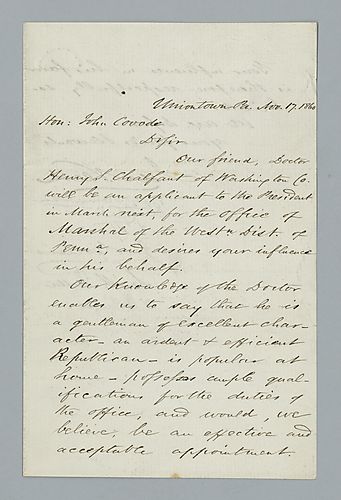 Uniontown Pa. Nov. 17. 1860
Hon: John Covode
D Sir
Our friend, Doctor
Henry S. Chalfant of Washington Co.
will be an applicant to the President
in March next, for the office of
Marshal of the West.n Dist. of
Penn.a, and desires your influence
in his behalf.
Our knowledge of the Doctor
enables us to say that he is
a gentleman of excellent char-
acter - an ardent & efficient
Republican - is popular at
home - possesses ample qual-
ifications for the duties of
the office, and would, we
believe, be an effective and
acceptable appointment